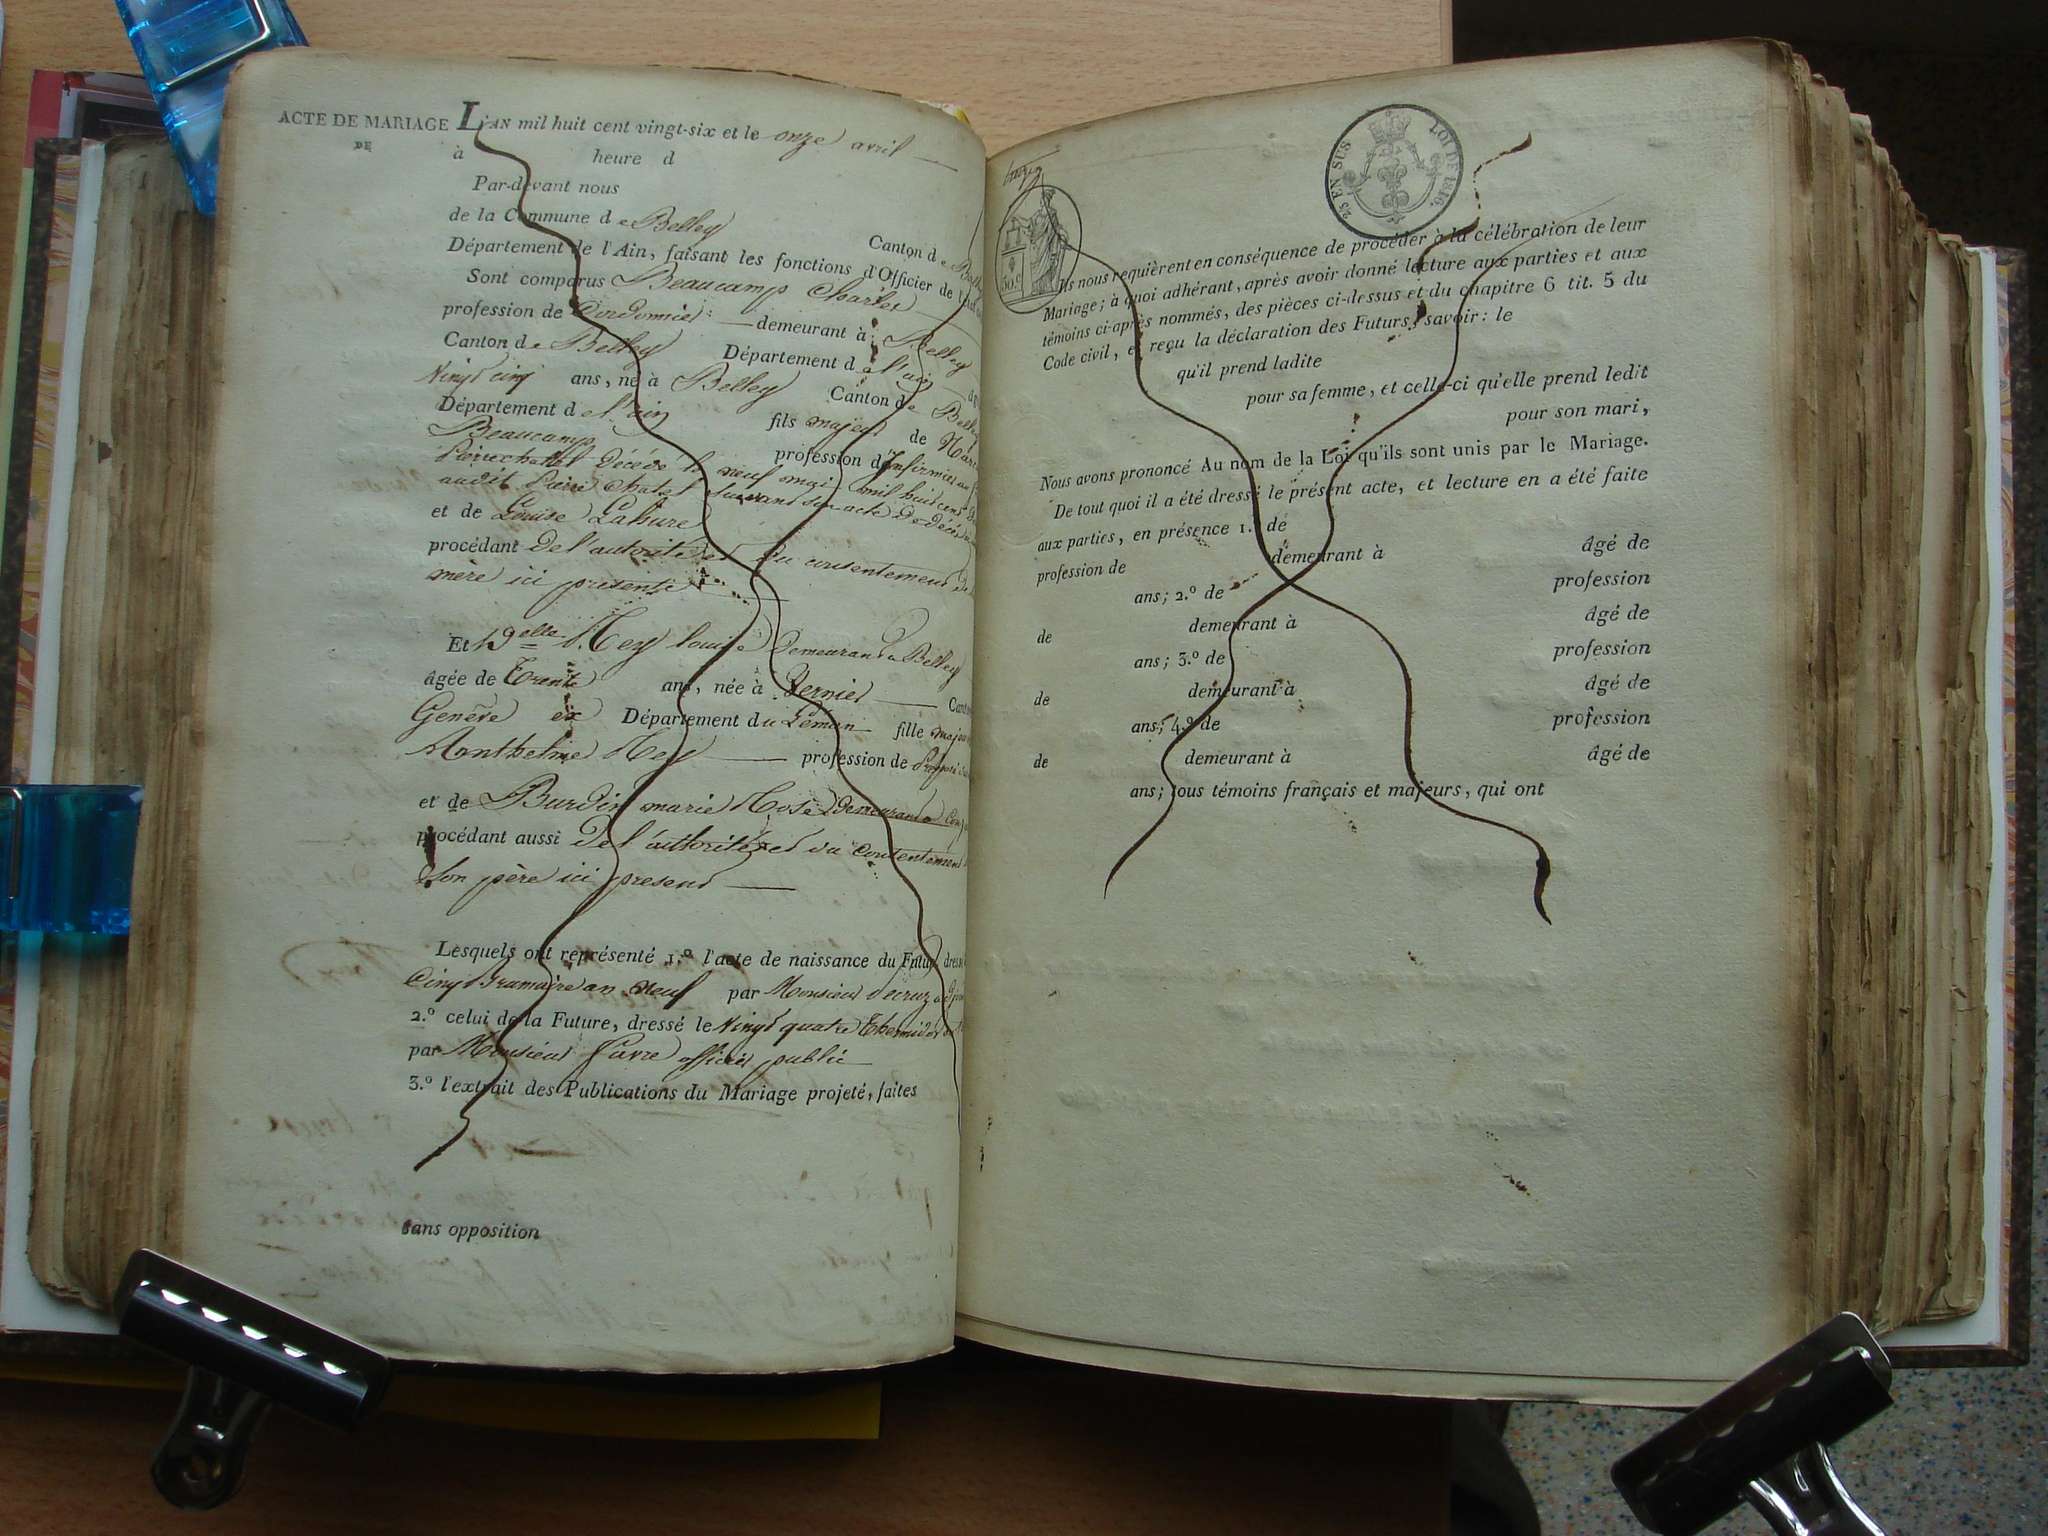 ACTE DE MARIAGE L'AN mil huit cent vingt-six et le onze avril
DE à heure d
Par-devant nous
de la Commune de Belley Canton de
Département de l'Ain, faisant les fonctions d'Officier de
Sont comparus Beaucamp Charles
profession de Cordonnier demeurant à Belley
Canton de Belley Département de l'ain
Vingt cinq ans, né à Belley Canton de Belley
Département de l'ain fils majeur de
Beaucamp profession d'Infirmier au
Pierrechatel décédé le neuf mai mil huit cent
audit Pierre Chatel suivant son acte de décès
et de Louise Lahure
procédant de l'autorité et du consentement de
mère ici présente
Et Dgelle Rey louise demeurant à Belley
âgée de Trente ans, née à Vernier
Genève ex Département du Léman fille
Anthelme Rey profession de
et de Burdin marie Rose demeurant à
procédant aussi de l'autorité et du consentement
son père ici présent
Lesquels ont représenté 1.º l'acte de naissance du Futur
cinq brumaire an neuf par Monsieur
2.º celui de la Future, dressé le Vingt quatre Thermidor
par Monsieur Favre officier public
3.º l'extrait des Publications du Mariage projeté, faites
sans opposition
25 EN SUS LOI DE 1816.
50 c
Ils nous requièrent en conséquence de procéder à la célébration de leur
Mariage ; à quoi adhérant, après avoir donné lecture aux parties et aux
témoins ci-après nommés, des pièces ci-dessus et du chapitre 6 tit. 5 du
Code civil, et reçu la déclaration des Futurs, savoir : le
qu'il prend ladite
pour sa femme, et celle-ci qu'elle prend ledit
pour son mari,
Nous avons prononcé Au nom de la Loi qu'ils sont unis par le Mariage.
De tout quoi il a été dressé le présent acte, et lecture en a été faite
aux parties, en présence 1.º de
profession de demeurant à âgé de
ans ; 2.º de profession
de demeurant à âgé de
ans ; 3.º de profession
de demeurant à âgé de
ans ; 4.º de profession
de demeurant à âgé de
ans ; tous témoins français et majeurs, qui ont